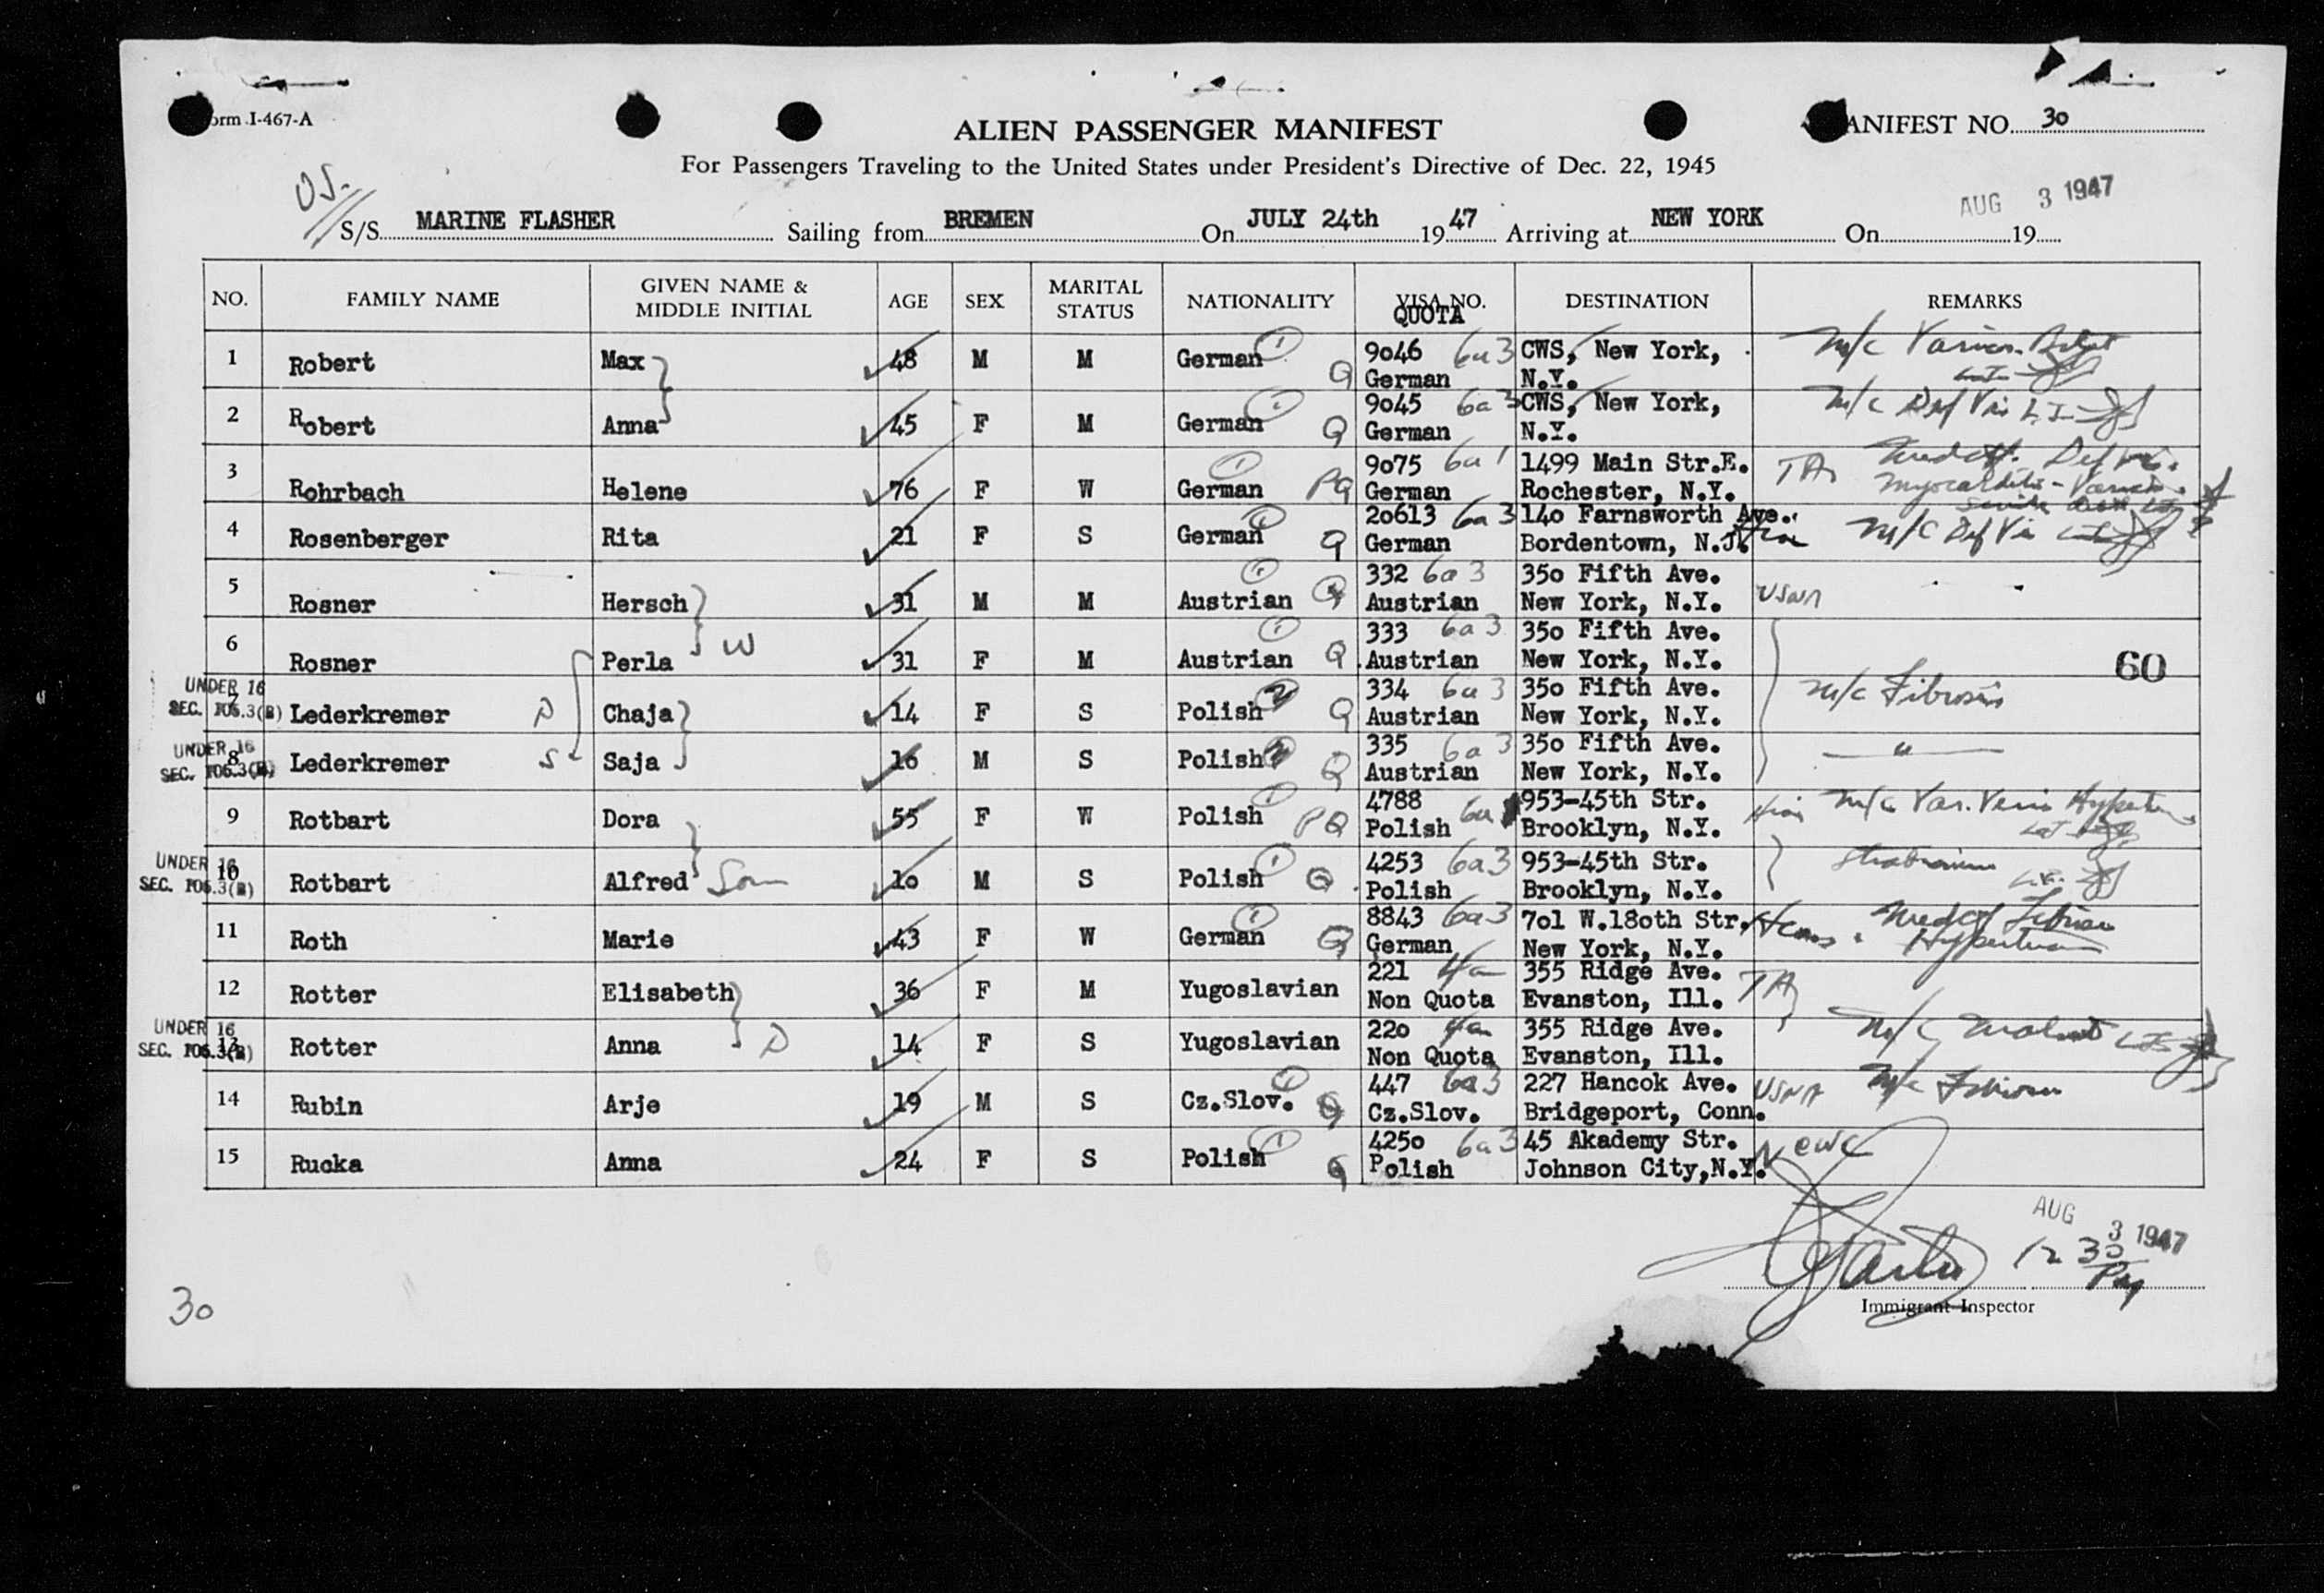 Form I-467-A
ALIEN PASSENGER MANIFEST
MANIFEST NO. 30
For Passengers Traveling to the United States under President's Directive of Dec. 22, 1945
AUG 3 1947
S/S MARINE FLASHER Sailing from BREMEN On JULY 24th 19 47 Arriving at NEW YORK On 19
NO. FAMILY NAME GIVEN NAME & MIDDLE INITIAL AGE SEX MARITAL STATUS NATIONALITY VISA NO. QUOTA DESTINATION REMARKS
1 Robert Max 48 M M German 9046 6a3 CWS, New York,
Q German N.Y.
2 Robert Anna 45 F M German 9045 6a3 CWS, New York, m/c Def Vis
Q German N.Y.
3 Rohrbach Helene 76 F W German 9075 6a1 1499 Main Str.E. TA
PQ German Rochester, N.Y.
4 Rosenberger Rita 21 F S German 20613 6a3 140 Farnsworth Ave. m/c Def Vis
Q German Bordentown, N.J.
5 Rosner Hersch 31 M M Austrian 332 6a3 350 Fifth Ave. USNA
Q Austrian New York, N.Y.
6 Rosner Perla W 31 F M Austrian 333 6a3 350 Fifth Ave.
Q Austrian New York, N.Y.
60
UNDER 16
SEC. 106.3(B)
7 Lederkremer D Chaja 14 F S Polish 334 6a3 350 Fifth Ave. m/c Fibrosis
Q Austrian New York, N.Y.
UNDER 16
SEC. 106.3(B)
8 Lederkremer S Saja 16 M S Polish 335 6a3 350 Fifth Ave. — " —
Q Austrian New York, N.Y.
9 Rotbart Dora 55 F W Polish 4788 6a1 953-45th Str. Hias m/c Var. Veins
PQ Polish Brooklyn, N.Y.
UNDER 16
SEC. 106.3(B)
10 Rotbart Alfred Son 10 M S Polish 4253 6a3 953-45th Str.
Q Polish Brooklyn, N.Y.
11 Roth Marie 43 F W German 8843 6a3 701 W.180th Str.
Q German New York, N.Y.
12 Rotter Elisabeth 36 F M Yugoslavian 221 4a 355 Ridge Ave. TA
Non Quota Evanston, Ill.
UNDER 16
SEC. 106.3(B)
13 Rotter Anna D 14 F S Yugoslavian 220 4a 355 Ridge Ave. m/c
Non Quota Evanston, Ill.
14 Rubin Arje 19 M S Cz.Slov. 447 6a3 227 Hancok Ave. USNA m/c
Q Cz.Slov. Bridgeport, Conn.
15 Rucka Anna 24 F S Polish 4250 6a3 45 Akademy Str. NCWC
Q Polish Johnson City,N.Y.
AUG 3 1947
12 30 PM
Immigrant Inspector
30